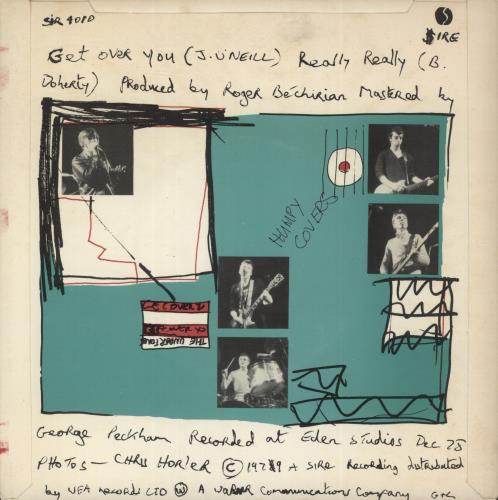 SIR 4010
SIRE
Get over you (J. O'NEILL) Really Really (B.
Doherty) Produced by Roger Béchirian Mastered by
HUMPY
COVERS
THE UNDERTONES
George Peckham Recorded at Eden Studios Dec 78
PHOTOS — CHRIS HORLER © 1979 A SIRE Recording distributed
by WEA RECORDS LTD Ⓦ A WARNER Communications Company